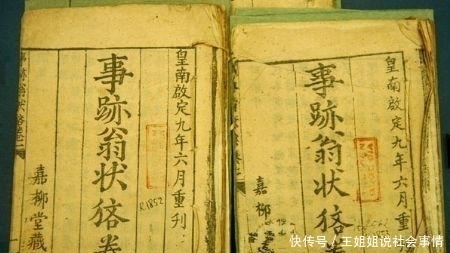 皇南啟定九年六月重刊
事跡翁狀狢卷
R.1852
嘉柳堂藏
皇南啟定九年六月重
事跡翁狀狢卷
嘉柳
快传号 / 王姐姐说社会事情